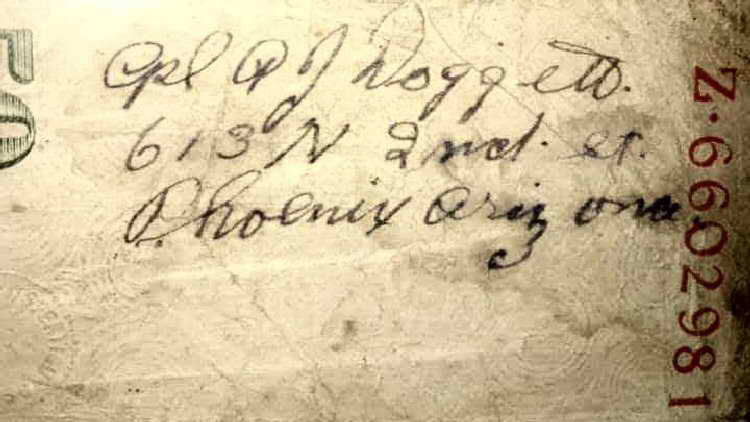 Cpl A J Doggett.
613 N 2nd. st.
Phoenix Arizona
Z·6602981
50